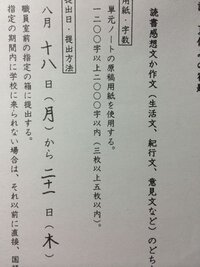 読書感想文か作文(生活文、紀行文、意見文など)のどち
用紙・字数
単元ノートの原稿用紙を使用する。
一二〇〇字以上二〇〇〇字以内(三枚以上五枚以内)。
提出日・提出方法
八月十八日(月)から二十一日(木)
職員室前の指定の箱に提出する。
指定の期間内に学校に来られない場合は、それ以前に直接、国